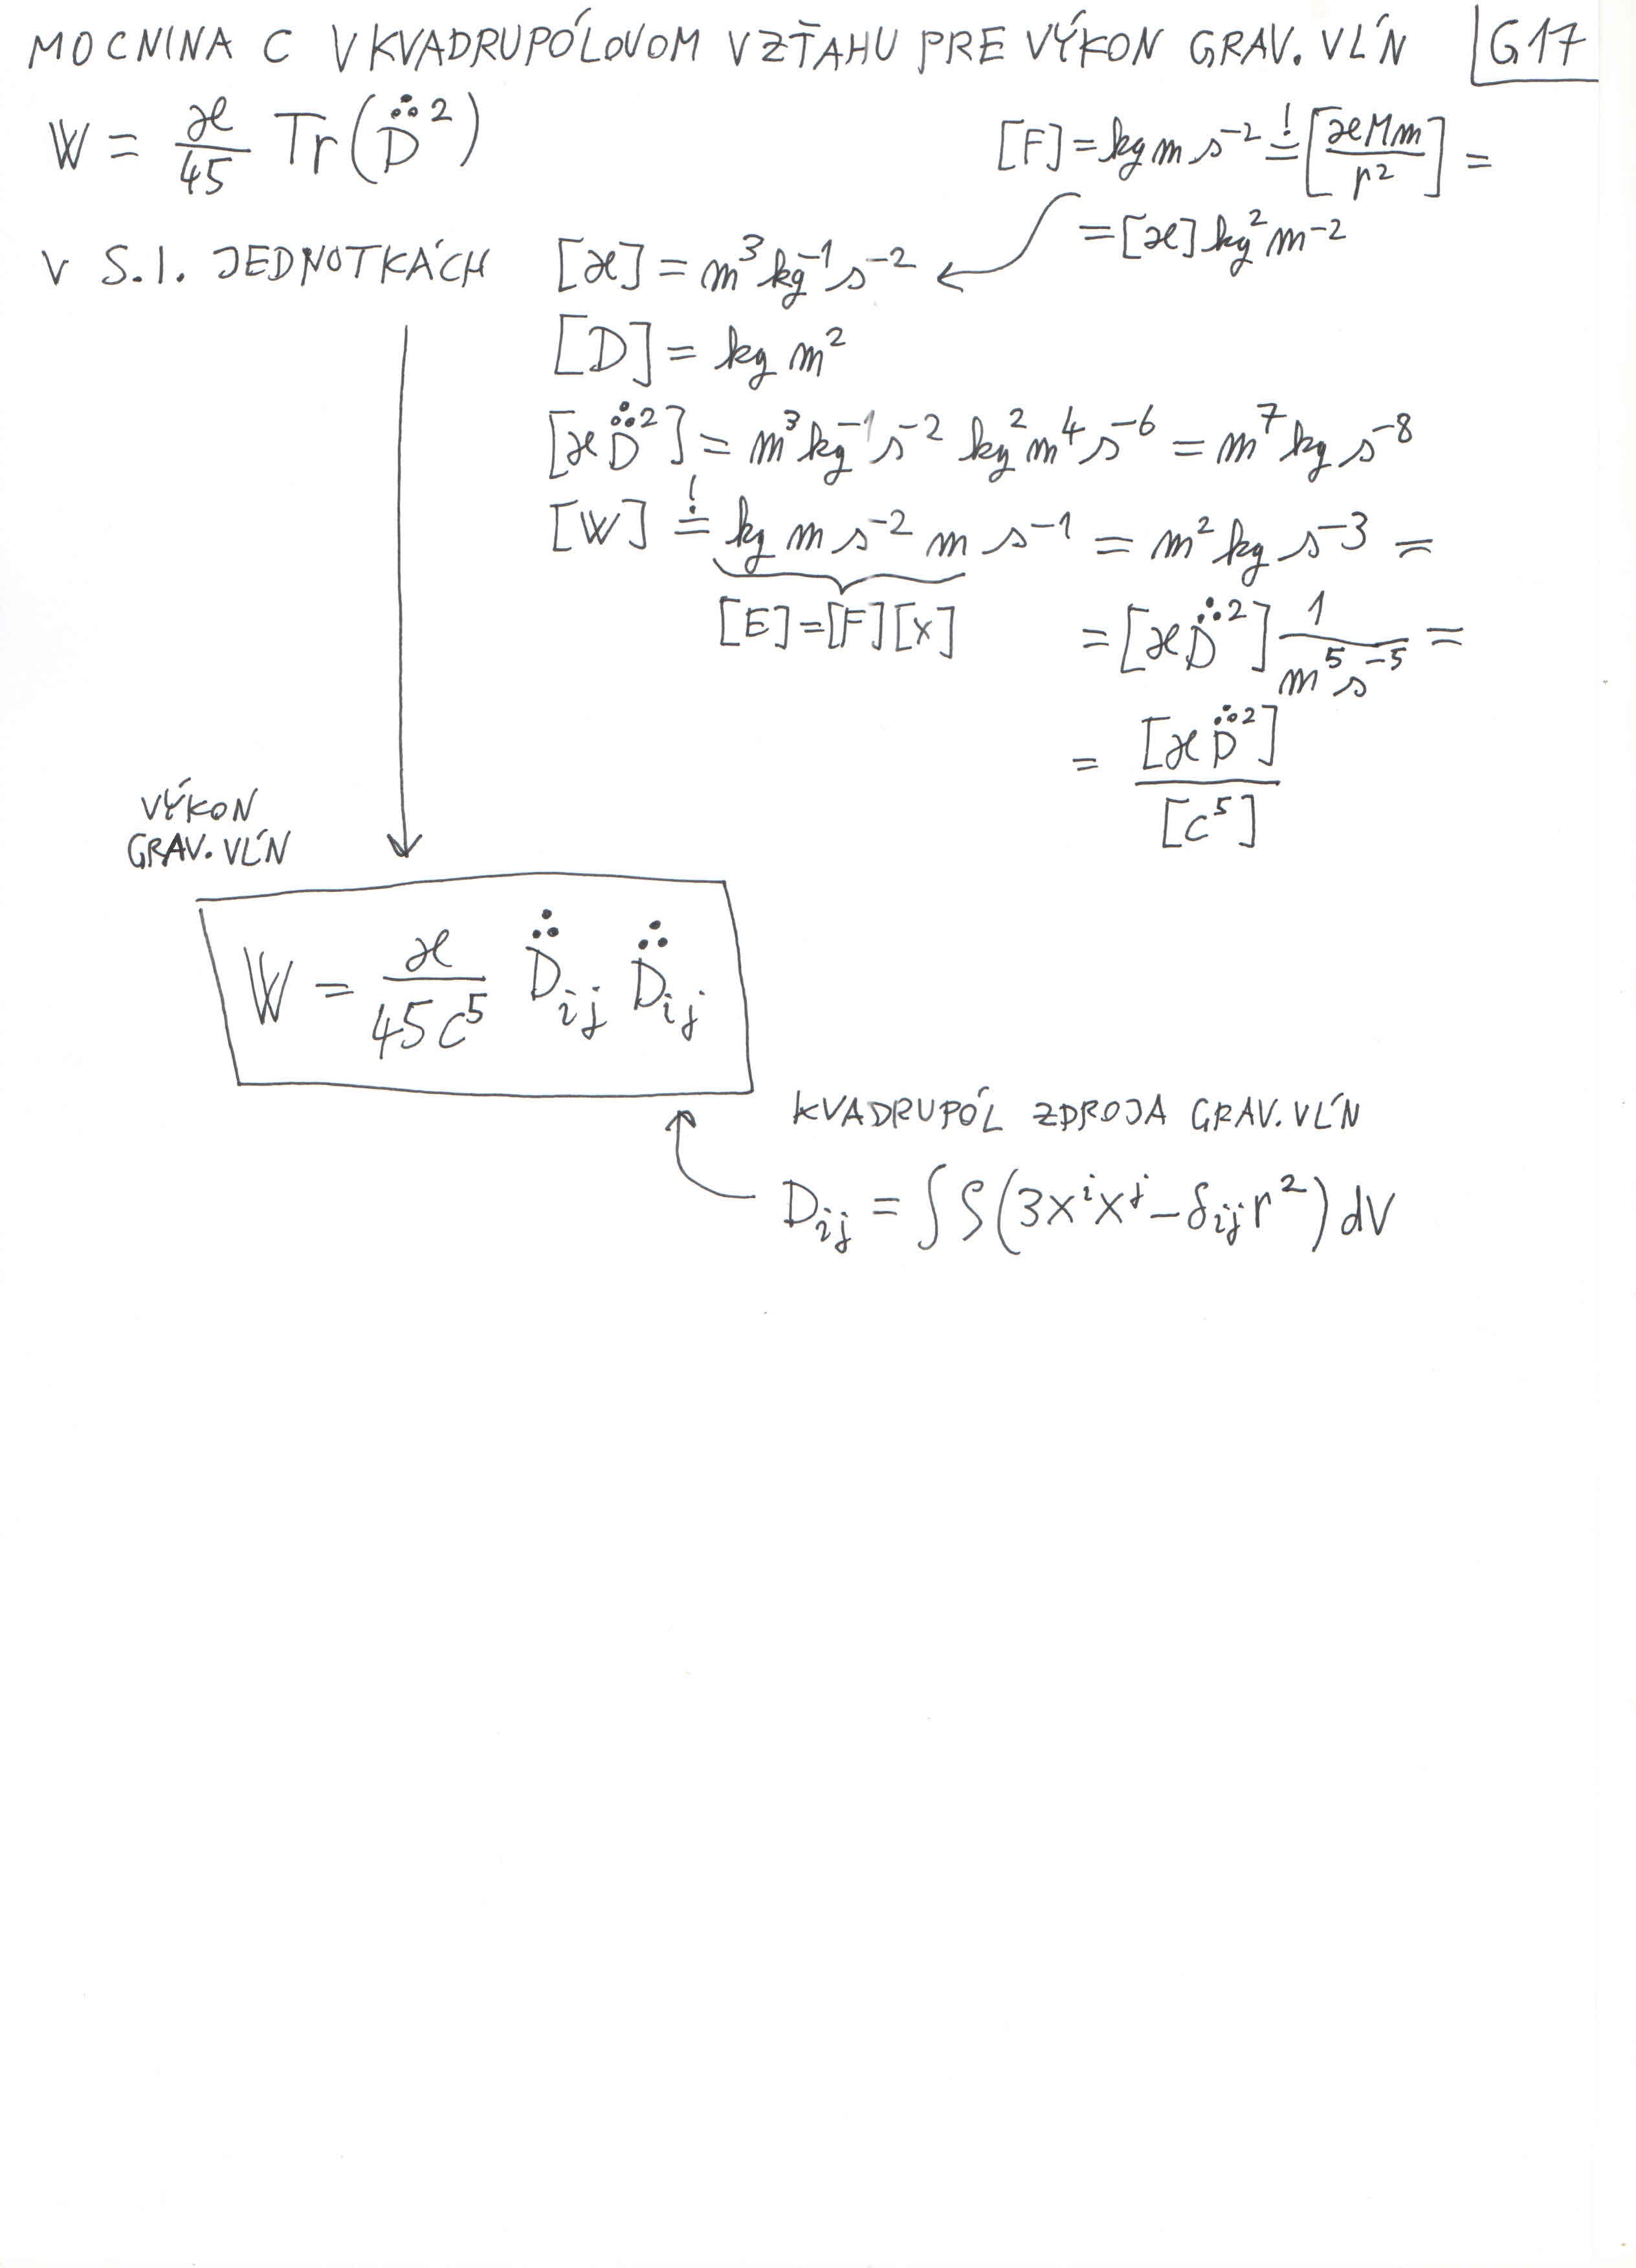 MOCNINA C V KVADRUPÓLOVOM VZŤAHU PRE VÝKON GRAV. VĹN G17
W = ϰ/45 Tr(D⃛²)
[F] = kg m s⁻² =! [ϰMm/r²] =
= [ϰ] kg² m⁻²
V S.I. JEDNOTKÁCH [ϰ] = m³ kg⁻¹ s⁻²
[D] = kg m²
[ϰD⃛²] = m³ kg⁻¹ s⁻² kg² m⁴ s⁻⁶ = m⁷ kg s⁻⁸
[W] =! kg m s⁻² m s⁻¹ = m² kg s⁻³ =
[E] = [F][x]
= [ϰD⃛²] 1/(m⁵ s⁻⁵) =
= [ϰD⃛²]/[c⁵]
VÝKON
GRAV. VĹN
W = ϰ/(45c⁵) D⃛ij D⃛ij
KVADRUPÓL ZDROJA GRAV. VĹN
Dij = ∫ρ(3xⁱxʲ − δij r²) dV